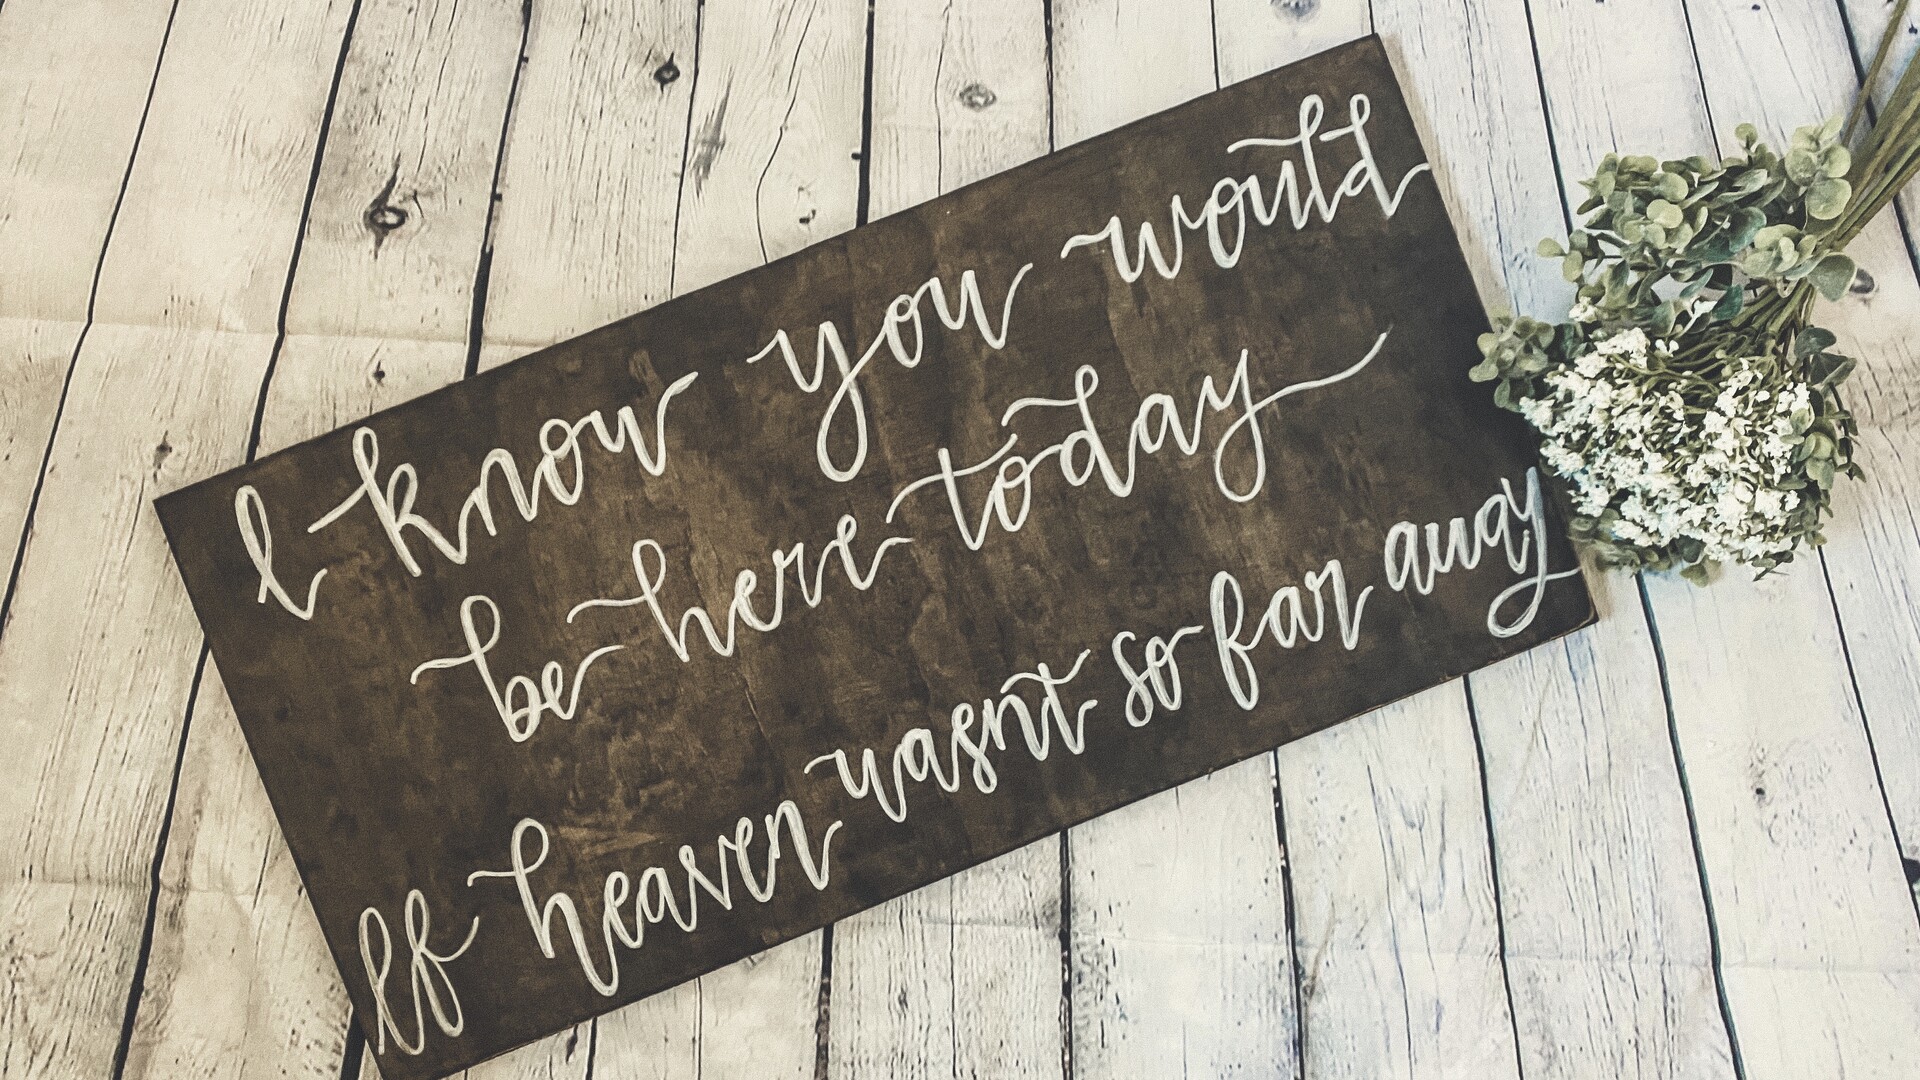 I know you would
be here today
If heaven wasnt so far away